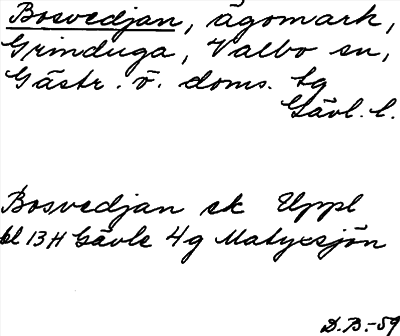 Bosvedjan, ägomark,
Grinduga, Valbo sn,
Gästr. ö. doms. tg
Gävl. l.
Bosvedjan sk Uppl
bl 13 H Gävle 4g Matyxsjön
D.B.-59